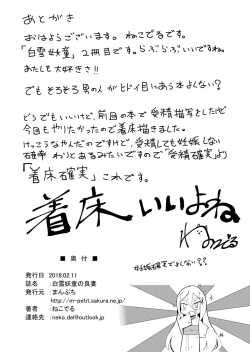 あとがき
おはようございます。ねこでるです。
「白雪妖童」2冊目です。らぶらぶいいですね。
あたしも大好きさ!!
でもそろそろ男の人がヒドイ目にあう本よくない?
どうでもいいけど、前回の本で受精描写したけど
今回もやりたかったので着床描きました。
けっこうなやんだのですけど、受精しても妊娠しない
確率 わりとあるみたいですので「受精確実」より
「着床確実」これです。
着床いいよね
ねこでる
■ 奥 付 ■
発行日 :2018.02.11
誌名 :白雪妖童の良妻
発行元 :まんぷち
http://m-petit.sakura.ne.jp/
著者 :ねこでる
連絡先 :neko_del@outlook.jp
妊娠確実でよくない??